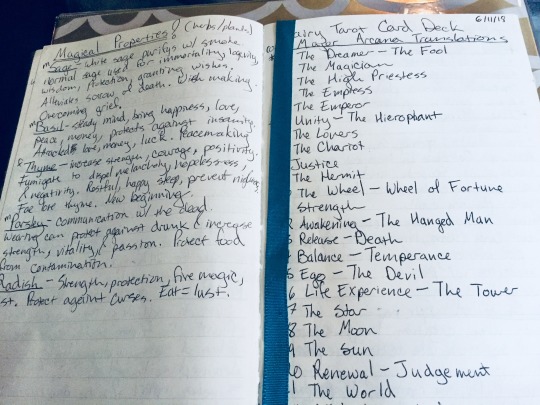 Magical Properties! (herbs/plants)
Sage - white sage purify w/ smoke,
normal sage used for immortality, longevity,
wisdom, protection, granting wishes.
Alleviates sorrow of death. Wish making.
Overcoming grief.
Basil - steady mind, bring happiness, love,
peace, money, protects against insanity.
Attracts love, money, luck. Peacemaking
Thyme - increase strength, courage, positivity.
Fumigate to dispel melancholy, hopelessness,
& negativity. Restful, happy sleep, prevent
Fae love thyme. New beginning.
Parsley - communication w/ the dead.
Wearing can protect against drunk & increase
strength, vitality, & passion. Protect food
from contamination.
Radish - Strength, protection, fire magic,
st. Protect against curses. Eat = lust.
6/11/18
airy Tarot Card Deck
Major Arcana Translations
The Dreamer - The Fool
The Magician
The High Priestess
The Empress
The Emperor
Unity - The Hierophant
The Lovers
The Chariot
Justice
The Hermit
The Wheel - Wheel of Fortune
Strength
2 Awakening - The Hanged Man
3 Release - Death
4 Balance - Temperance
5 Ego - The Devil
6 Life Experience - The Tower
7 The Star
8 The Moon
9 The Sun
0 Renewal - Judgement
1 The World